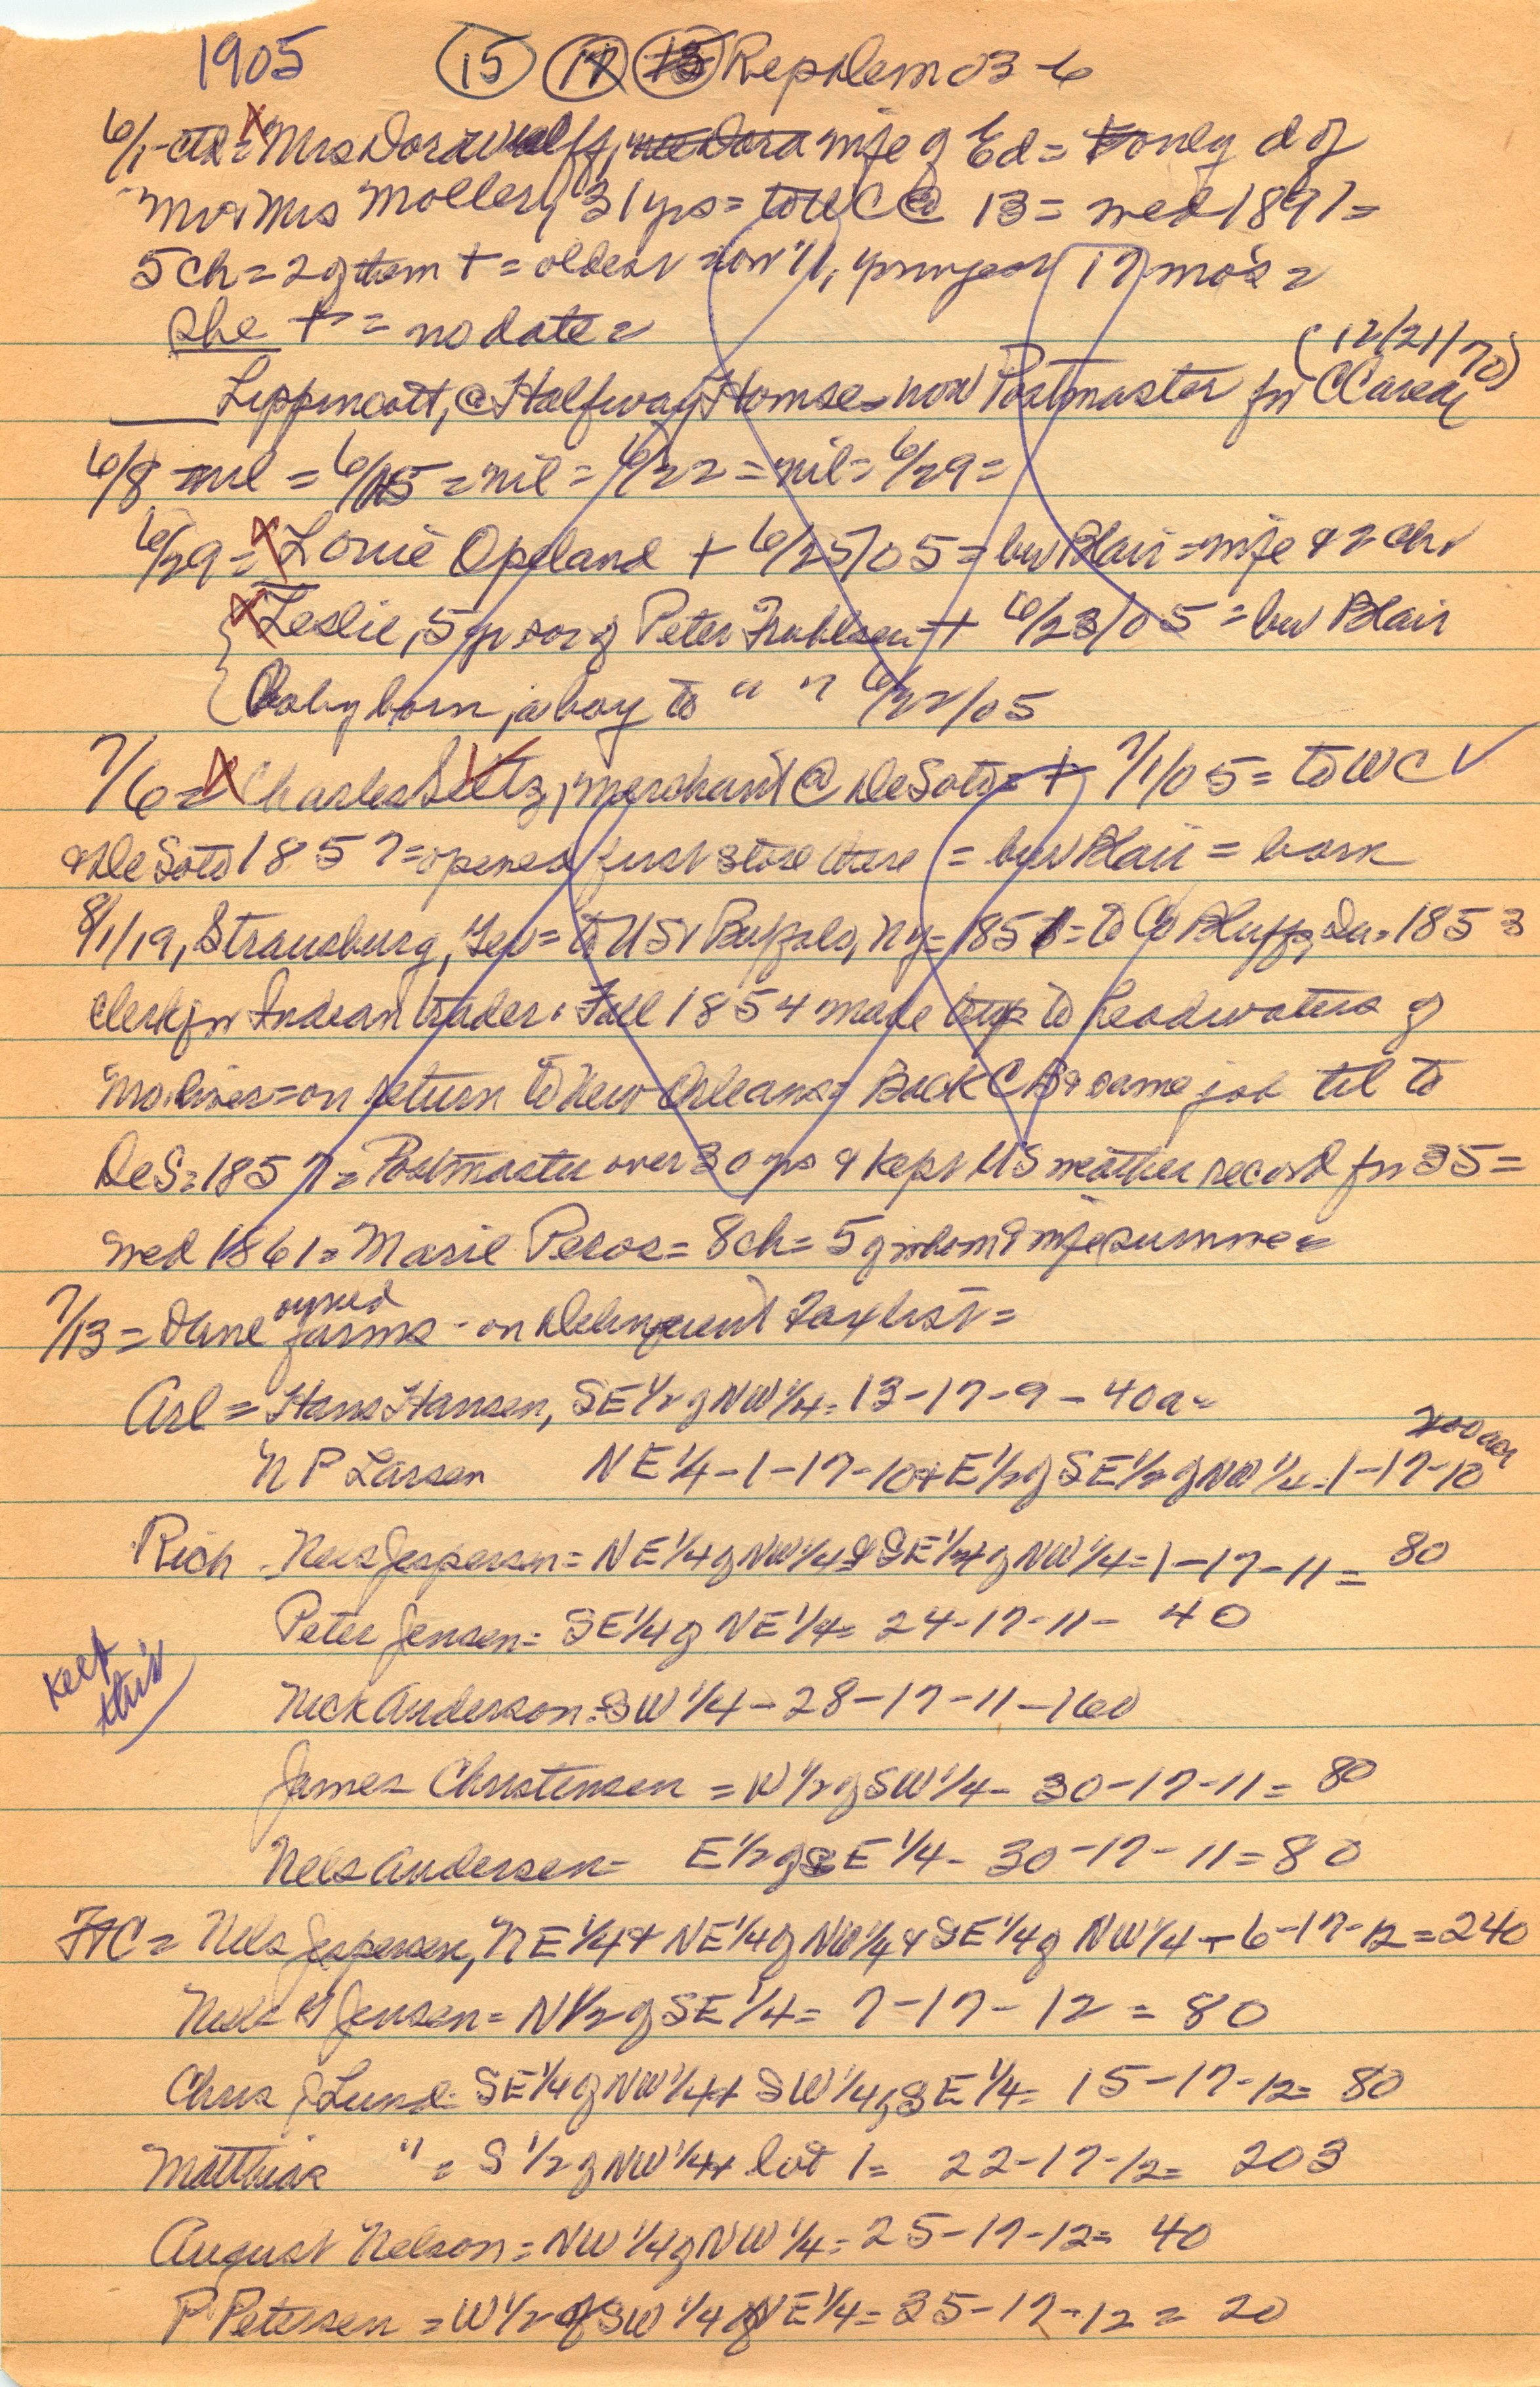 1905 15 17 13 Rep Dem 03-6
6/1- = Mrs Dora Wulff, wife of Ed = only d of
Mr & Mrs Moller, 31 yrs = to WC @ 13 = wed 1891 =
5 ch = 2 of them + = oldest now 11, youngest 17 mo's =
She + = no date =
(12/21/70)
Lippincott, @ Halfway House = now Postmaster for
6/8 nil = 6/15 = nil = 6/22 = nil = 6/29 =
6/29 = Louie Opeland + 6/25/05 = bur Blair = wife & 2 ch
Leslie, 5 yr son of Peter + 6/23/05 = bur Blair
Baby born, a boy to " " 6/22/05
7/6 = Charles Seltz, merchant @ DeSoto = + 7/1/05 = to WC
& DeSoto 1857 = opened first store there = bur Blair = born
8/1/19, Strausburg, Ger = to US & Buffalo, NY = 1851 = to Co Bluffs, Ia = 1853
clerk for Indian trader. Fall 1854 made trip to headwaters of
Mo. River = on return to New Orleans = Back CB & same job til to
DeS = 1857 = Postmaster over 30 yrs & kept US weather record for 35 =
wed 1861 = Marie Peros = 8 ch = 5 of whom & wife survive =
owned
7/13 = Dane farms - on Delinquent Tax list =
Arl = Hans Hansen, SE 1/2 of NW 1/4 = 13-17-9 - 40 a =
200 acr
N P Larsen NE 1/4 - 1-17-10 + E 1/2 of SE 1/2 of NW 1/4 - 1-17-10
Rich - Nels Jespersen = NE 1/4 of NW 1/4 & SE 1/4 of NW 1/4 = 1-17-11 = 80
Peter Jensen = SE 1/4 of NE 1/4 = 24-17-11 - 40
keep
this
Nick Anderson = SW 1/4 - 28-17-11 - 160
James Christensen = W 1/2 of SW 1/4 - 30-17-11 = 80
Nels Andersen = E 1/2 of SE 1/4 - 30-17-11 = 80
FtC = Nels Jespersen, NE 1/4 + NE 1/4 of NW 1/4 & SE 1/4 of NW 1/4 - 6-17-12 = 240
Nels Jensen = N 1/2 of SE 1/4 = 7-17-12 = 80
Chris J Lund = SE 1/4 of NW 1/4 + SW 1/4, SE 1/4 = 15-17-12 = 80
Matthias " = S 1/2 of NW 1/4 + lot 1 = 22-17-12 = 203
August Nelson = NW 1/4 of NW 1/4 = 25-17-12 = 40
P Petersen = W 1/2 of SW 1/4 of NE 1/4 = 35-17-12 = 20